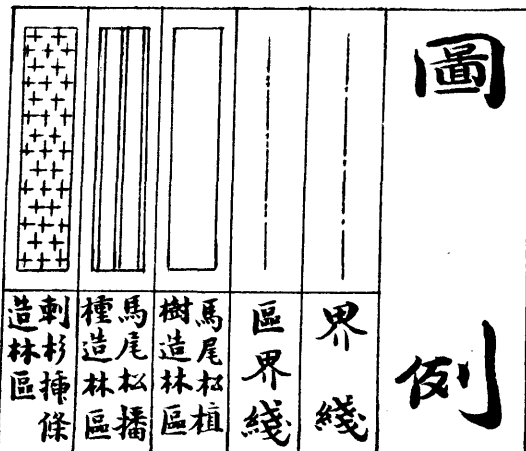 圖例
界綫
區界綫
馬尾松植
樹造林區
馬尾松播
種造林區
刺杉插條
造林區